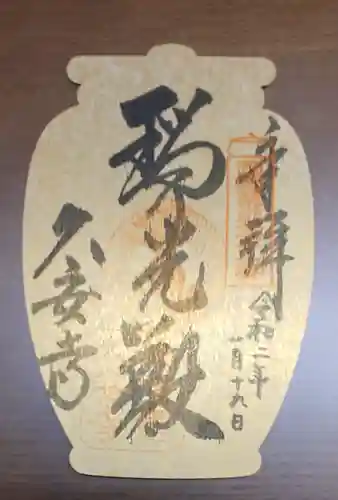 奉拝
令和二年
一月十九日
瑠光殿
久安寺